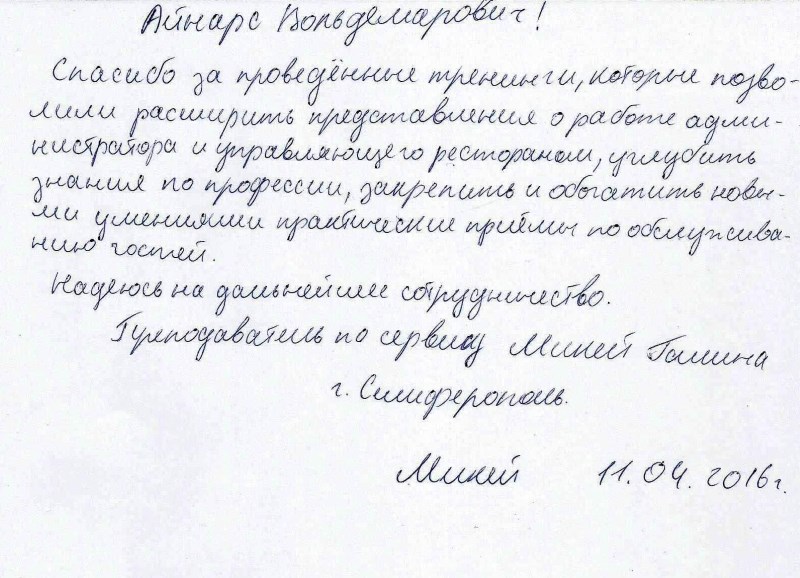 Айнарс Вольдемарович!
Спасибо за проведённые тренинги, которые позво-
лили расширить представления о работе адми-
нистратора и управляющего рестораном, углубить
знания по профессии, закрепить и обогатить новы-
ми умениями практические приёмы по обслужива-
нию гостей.
Надеюсь на дальнейшее сотрудничество.
Преподаватель по сервису Микей Галина
г. Симферополь.
Микей 11.04.2016г.